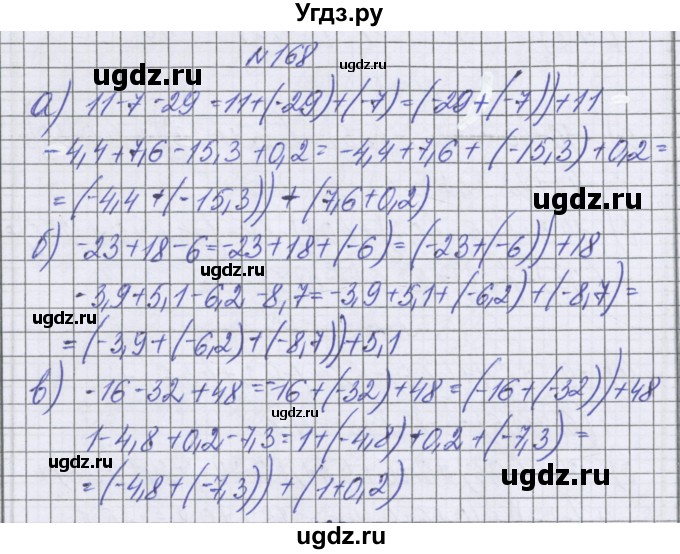 Угдз.ру
№168
ugdz.ru
ugdz.ru
а) 11-7-29=11+(-29)+(-7)=(-29+(-7))+11
-4,4+7,6-15,3+0,2=-4,4+7,6+(-15,3)+0,2=
ugdz.ru
=(-4,4+(-15,3))+(7,6+0,2)
б) -23+18-6=-23+18+(-6)=(-23+(-6))+18
ugdz.ru
-3,9+5,1-6,2-8,7=-3,9+5,1+(-6,2)+(-8,7)=
ugdz.ru
=(-3,9+(-6,2)+(-8,7))+5,1
ugdz.ru
в) -16-32+48=-16+(-32)+48=(-16+(-32))+48
ugdz.ru
1-4,8+0,2-7,3=1+(-4,8)+0,2+(-7,3)=
ugdz.ru
ugdz.ru
=(-4,8+(-7,3))+(1+0,2)
ugdz.ru
ugdz.ru